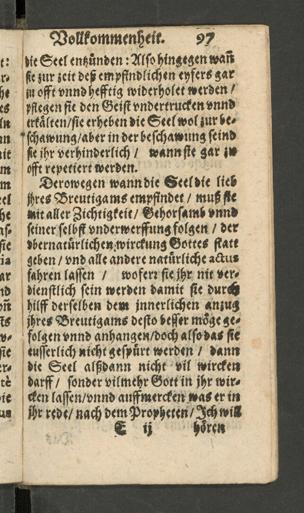 Vollkommenheit. 97
die Seel enzünden: Also hingegen wañ
sie zur zeit deß empfindlichen eyfers gar
zu offt vnnd hefftig widerholet werden /
pflegen sie den Geist vndertrucken vnnd
erkälten/sie erheben die Seel wol zur be-
schawung/aber in der beschawung seind
sie jhr verhinderlich / wann ste gar zu
offt repetiert werden.
Derowegen wann die Seel die lieb
jhres Breutigams empfindet / muß sie
mit aller Zichtigkeit/ Gehorsamb vnnd
seiner selbst vnderwerffung folgen / der
vbernatürlichen wirckung Gottes statt
geben / vnd alle andere natürliche actus
fahren lassen / wofern sie jhr nit ver-
dienstlich sein werden damit sie durch
hilff derselben dem jnnerlichen anzug
jhres Breutigams desto besser möge ge-
folgen vnnd anhangen/doch also das sie
eusserlich nicht gespürt werden / dann
die Seel alßdann nicht vil wircken
darff / sonder vilmehr Gott in jhr wir-
cken lassen/vnnd auffmercken was er in
jhr rede/ nach dem Propheten/ Ich will
E ij hören